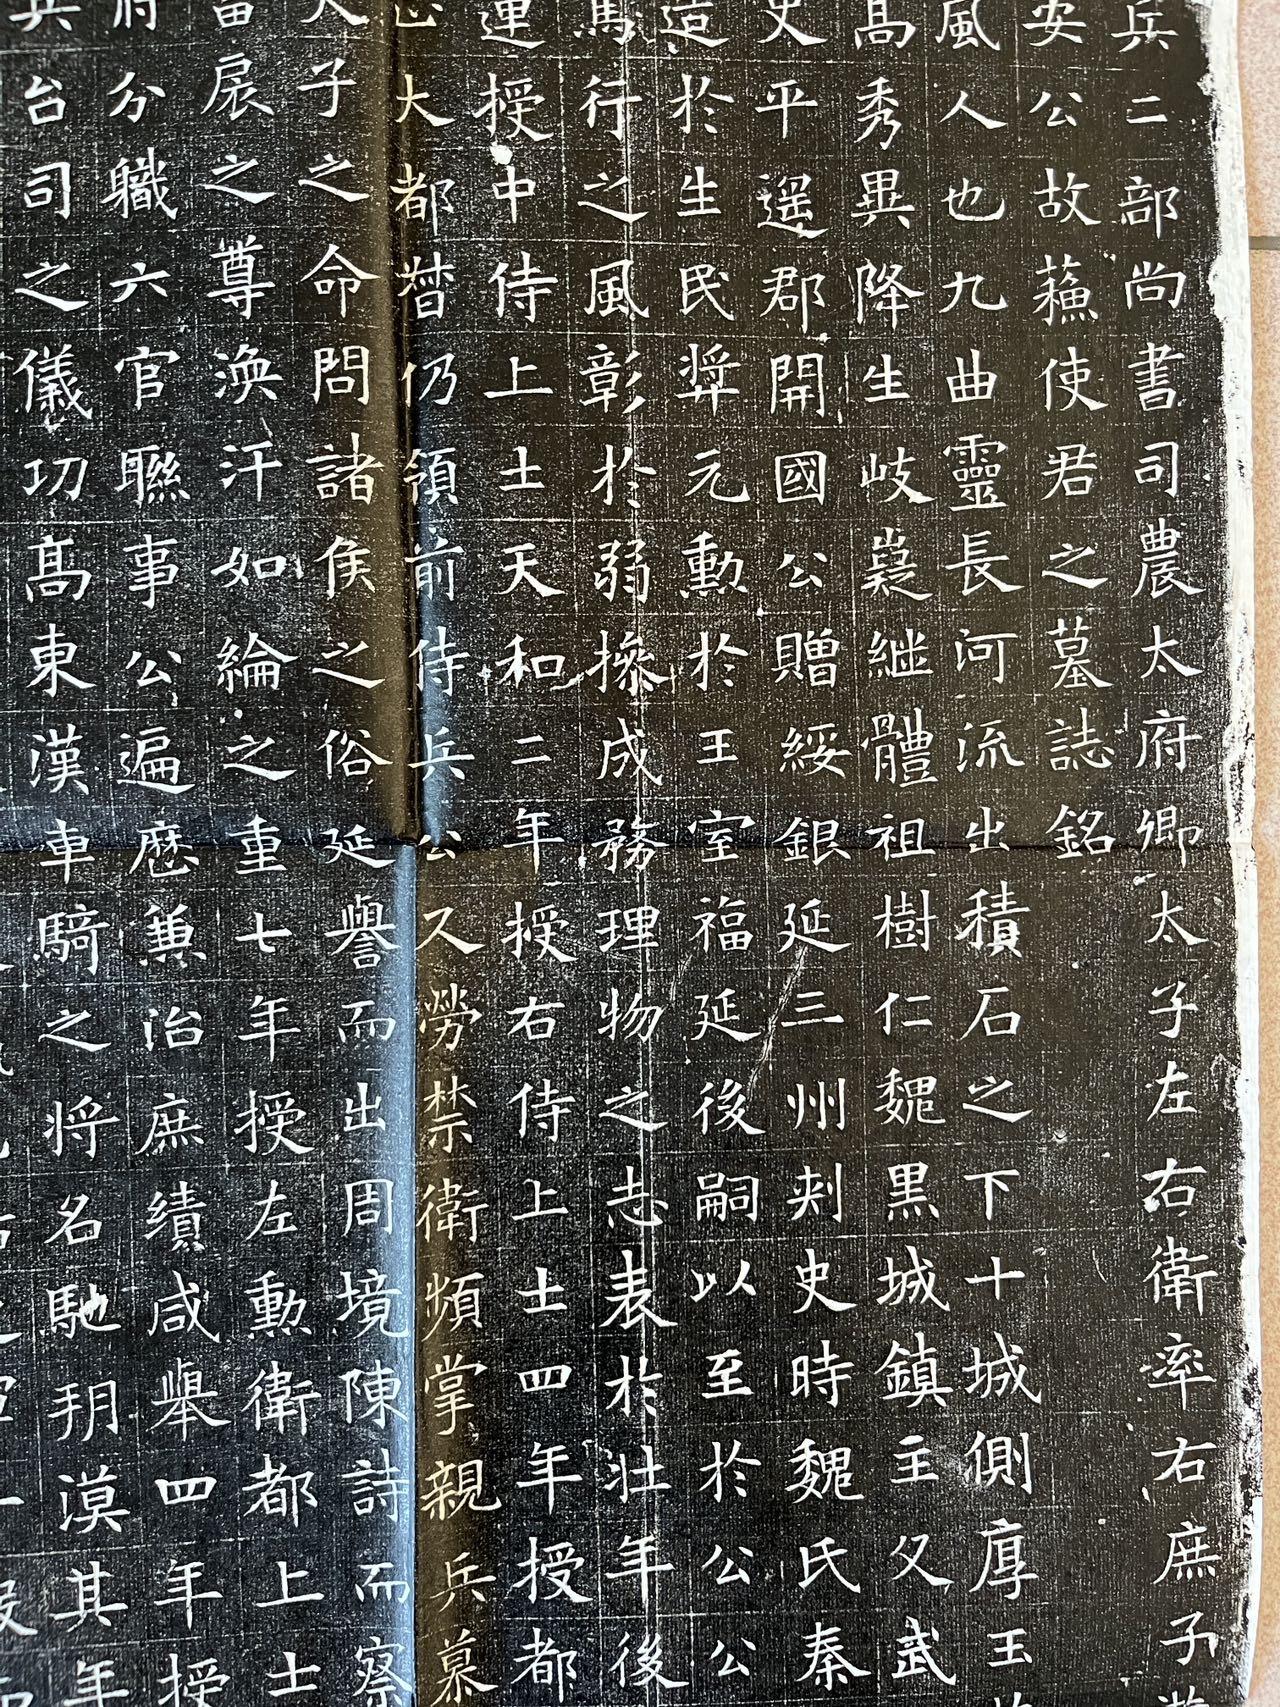 兵二部尚書司農太府卿太子左右衛率右庶子
安公故蘓使君之墓誌銘
風人也九曲靈長河流出積石之下十城側厚王
高秀異降生岐嶷継體祖樹仁魏黒城鎮主父武
史平遥郡開國公贈綏銀延三州刾史時魏氏秦
造於生民弉元勳於王室福延後嗣以至於公公
馬行之風彰於弱操成務理物之志表於壮年後
運授中侍上士天和二年授右侍上士四年授都
大都督仍領前侍兵公久勞禁衛頻掌親兵慕
子之命問諸侯之俗延譽而出周境陳詩而察
畱扆之尊渙汗如綸之重七年授左勳衛都上士
府分職六官聮事公遍歴兼治庶績咸舉四年授
兵台司之儀切髙東漢車騎之将名馳玥漠其年